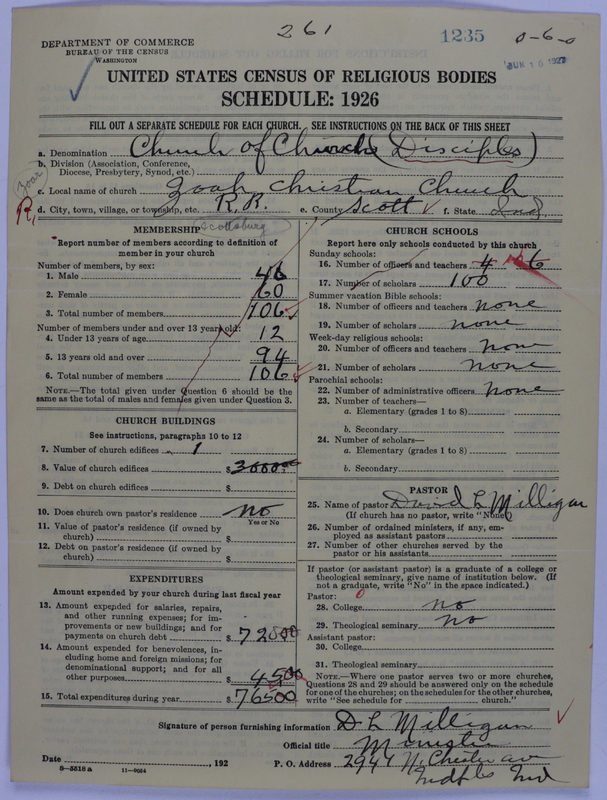 261
1235
0-6-0
JUN 10 1927
DEPARTMENT OF COMMERCE
BUREAU OF THE CENSUS
WASHINGTON
UNITED STATES CENSUS OF RELIGIOUS BODIES
SCHEDULE: 1926
FILL OUT A SEPARATE SCHEDULE FOR EACH CHURCH. SEE INSTRUCTIONS ON THE BACK OF THIS SHEET
a. Denomination Church of Christ (Disciples)
b. Division (Association, Conference, Diocese, Presbytery, Synod, etc.)
Zoar
c. Local name of church Zoah Christian Church
R, d. City, town, village, or township, etc. R.R. e. County Scott f. State Ind
Scottsburg
MEMBERSHIP
Report number of members according to definition of member in your church
Number of members, by sex:
1. Male 46
2. Female 60
3. Total number of members 106
Number of members under and over 13 years old:
4. Under 13 years of age 12
5. 13 years old and over 94
6. Total number of members 106
NOTE.—The total given under Question 6 should be the same as the total of males and females given under Question 3.
CHURCH BUILDINGS
See instructions, paragraphs 10 to 12
7. Number of church edifices 1
8. Value of church edifices $3000.00
9. Debt on church edifices $
10. Does church own pastor's residence? no
Yes or No
11. Value of pastor's residence (if owned by church) $
12. Debt on pastor's residence (if owned by church) $
EXPENDITURES
Amount expended by your church during last fiscal year
13. Amount expended for salaries, repairs, and other running expenses; for improvements or new buildings; and for payments on church debt $72000
14. Amount expended for benevolences, including home and foreign missions; for denominational support; and for all other purposes $4500
15. Total expenditures during year $76500
CHURCH SCHOOLS
Report here only schools conducted by this church
Sunday schools:
16. Number of officers and teachers 4 6
17. Number of scholars 100
Summer vacation Bible schools:
18. Number of officers and teachers none
19. Number of scholars none
Week-day religious schools:
20. Number of officers and teachers none
21. Number of scholars none
Parochial schools:
22. Number of administrative officers none
23. Number of teachers—
a. Elementary (grades 1 to 8)
b. Secondary
24. Number of scholars—
a. Elementary (grades 1 to 8)
b. Secondary
PASTOR
25. Name of pastor David L Milligan
(If church has no pastor, write "None")
26. Number of ordained ministers, if any, employed as assistant pastors
27. Number of other churches served by the pastor or his assistants
If pastor (or assistant pastor) is a graduate of a college or theological seminary, give name of institution below. (If not a graduate, write "No" in the space indicated.)
Pastor: 0
28. College no
29. Theological seminary no
Assistant pastor:
30. College
31. Theological seminary
NOTE.—Where one pastor serves two or more churches, Questions 28 and 29 should be answered only on the schedule for one of the churches; on the schedules for the other churches, write "See schedule for church."
Signature of person furnishing information D L Milligan
Official title Minister
Date , 192 P. O. Address 2944 N. Chester av
Indpls Ind
8-5518a 11-9034